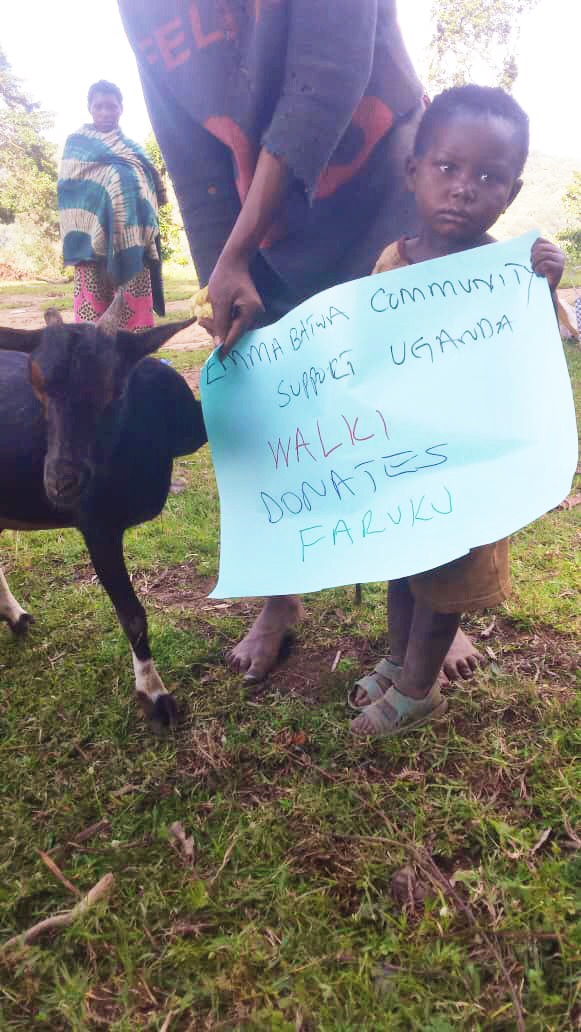 FELI
EMMA BATWA COMMUNITY
SUPPORT UGANDA
WALKI
DONATES
FARUKU